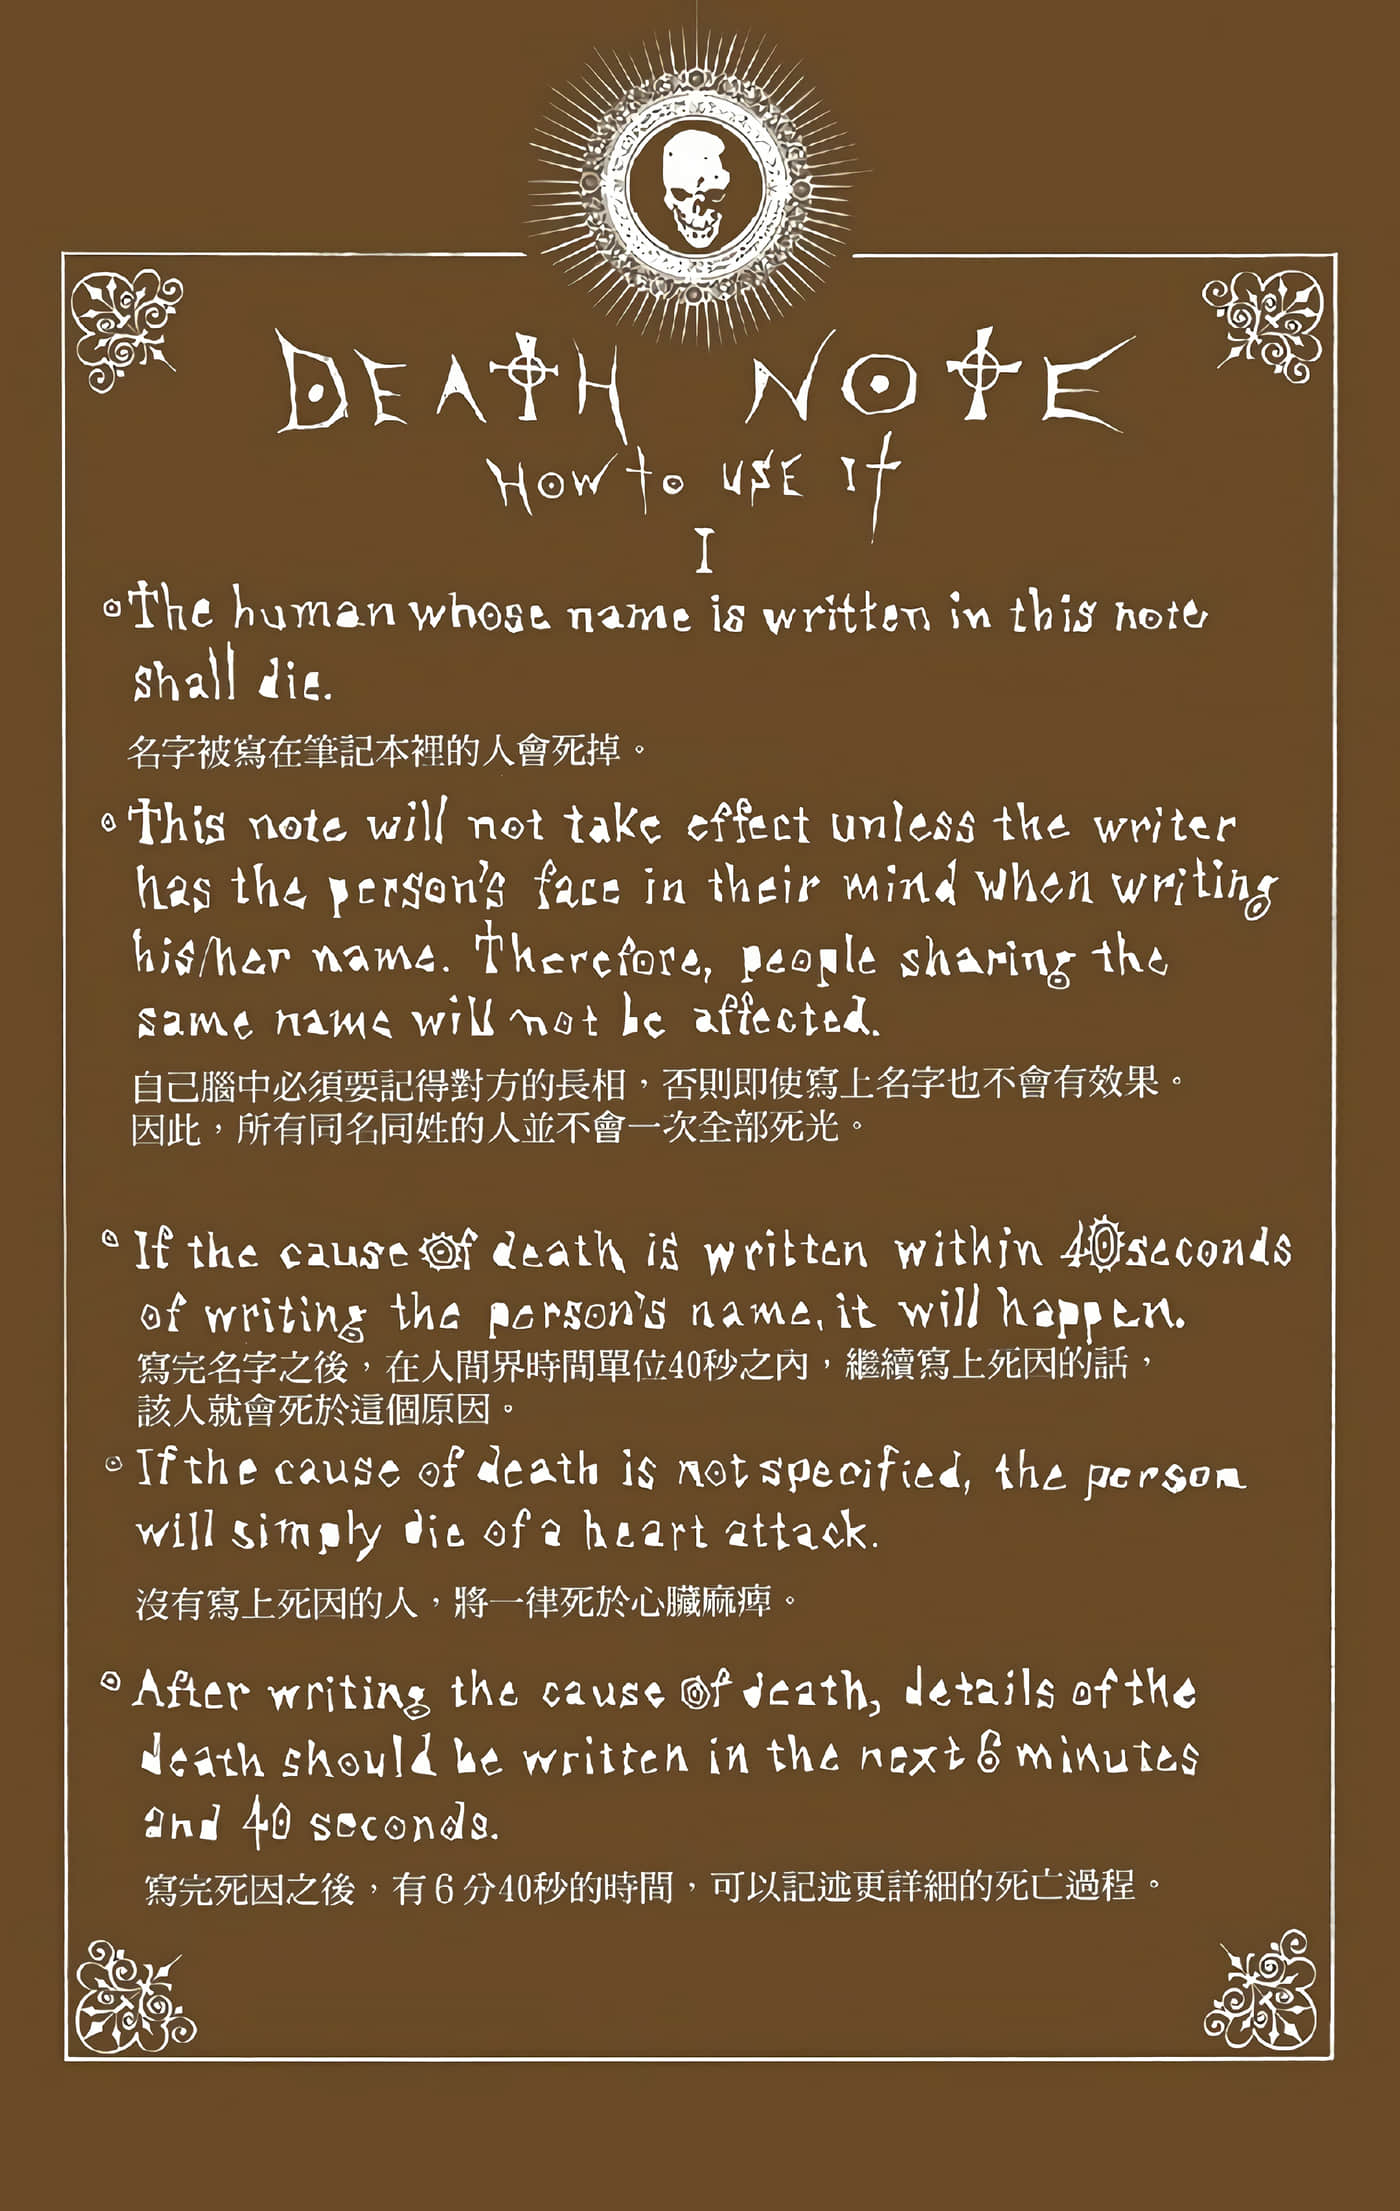 DEATH NOTE
HOW to USE It
I
The human whose name is written in this note
shall die.
名字被寫在筆記本裡的人會死掉。
This note will not take effect unless the writer
has the person's face in their mind when writing
his/her name. Therefore, people sharing the
same name will not be affected.
自己腦中必須要記得對方的長相，否則即使寫上名字也不會有效果。
因此，所有同名同姓的人並不會一次全部死光。
If the cause of death is written within 40seconds
of writing the person's name, it will happen.
寫完名字之後，在人間界時間單位40秒之內，繼續寫上死因的話，
該人就會死於這個原因。
If the cause of death is not specified, the person
will simply die of a heart attack.
沒有寫上死因的人，將一律死於心臟麻痺。
After writing the cause of death, details of the
death should be written in the next 6 minutes
and 40 seconds.
寫完死因之後，有6分40秒的時間，可以記述更詳細的死亡過程。